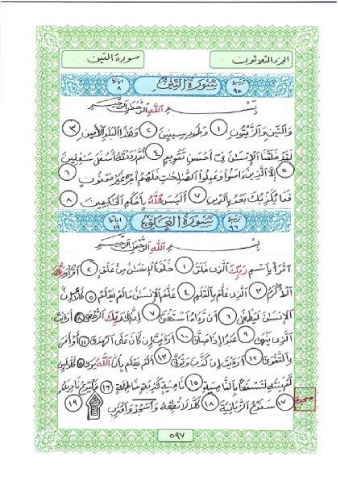 الجزء الثلاثون سورة التين
٩٥ سُورَةُ التِّينِ ٨
بِسْمِ اللَّهِ الرَّحْمَٰنِ الرَّحِيمِ
وَالتِّينِ وَالزَّيْتُونِ ١ وَطُورِ سِينِينَ ٢ وَهَٰذَا الْبَلَدِ الْأَمِينِ ٣
لَقَدْ خَلَقْنَا الْإِنسَانَ فِي أَحْسَنِ تَقْوِيمٍ ٤ ثُمَّ رَدَدْنَاهُ أَسْفَلَ سَافِلِينَ
٥ إِلَّا الَّذِينَ آمَنُوا وَعَمِلُوا الصَّالِحَاتِ فَلَهُمْ أَجْرٌ غَيْرُ مَمْنُونٍ ٦
فَمَا يُكَذِّبُكَ بَعْدُ بِالدِّينِ ٧ أَلَيْسَ اللَّهُ بِأَحْكَمِ الْحَاكِمِينَ ٨
٩٦ سُورَةُ الْعَلَقِ ١٩
بِسْمِ اللَّهِ الرَّحْمَٰنِ الرَّحِيمِ
اقْرَأْ بِاسْمِ رَبِّكَ الَّذِي خَلَقَ ١ خَلَقَ الْإِنسَانَ مِنْ عَلَقٍ ٢ اقْرَأْ وَرَبُّكَ
الْأَكْرَمُ ٣ الَّذِي عَلَّمَ بِالْقَلَمِ ٤ عَلَّمَ الْإِنسَانَ مَا لَمْ يَعْلَمْ ٥ كَلَّا إِنَّ
الْإِنسَانَ لَيَطْغَىٰ ٦ أَن رَّآهُ اسْتَغْنَىٰ ٧ إِنَّ إِلَىٰ رَبِّكَ الرُّجْعَىٰ ٨ أَرَأَيْتَ
الَّذِي يَنْهَىٰ ٩ عَبْدًا إِذَا صَلَّىٰ ١٠ أَرَأَيْتَ إِن كَانَ عَلَى الْهُدَىٰ ١١ أَوْ أَمَرَ
بِالتَّقْوَىٰ ١٢ أَرَأَيْتَ إِن كَذَّبَ وَتَوَلَّىٰ ١٣ أَلَمْ يَعْلَم بِأَنَّ اللَّهَ يَرَىٰ ١٤ كَلَّا لَئِن
لَّمْ يَنتَهِ لَنَسْفَعًا بِالنَّاصِيَةِ ١٥ نَاصِيَةٍ كَاذِبَةٍ خَاطِئَةٍ ١٦ فَلْيَدْعُ نَادِيَهُ
١٧ سَنَدْعُ الزَّبَانِيَةَ ١٨ كَلَّا لَا تُطِعْهُ وَاسْجُدْ وَاقْتَرِب ١٩
٥٩٧